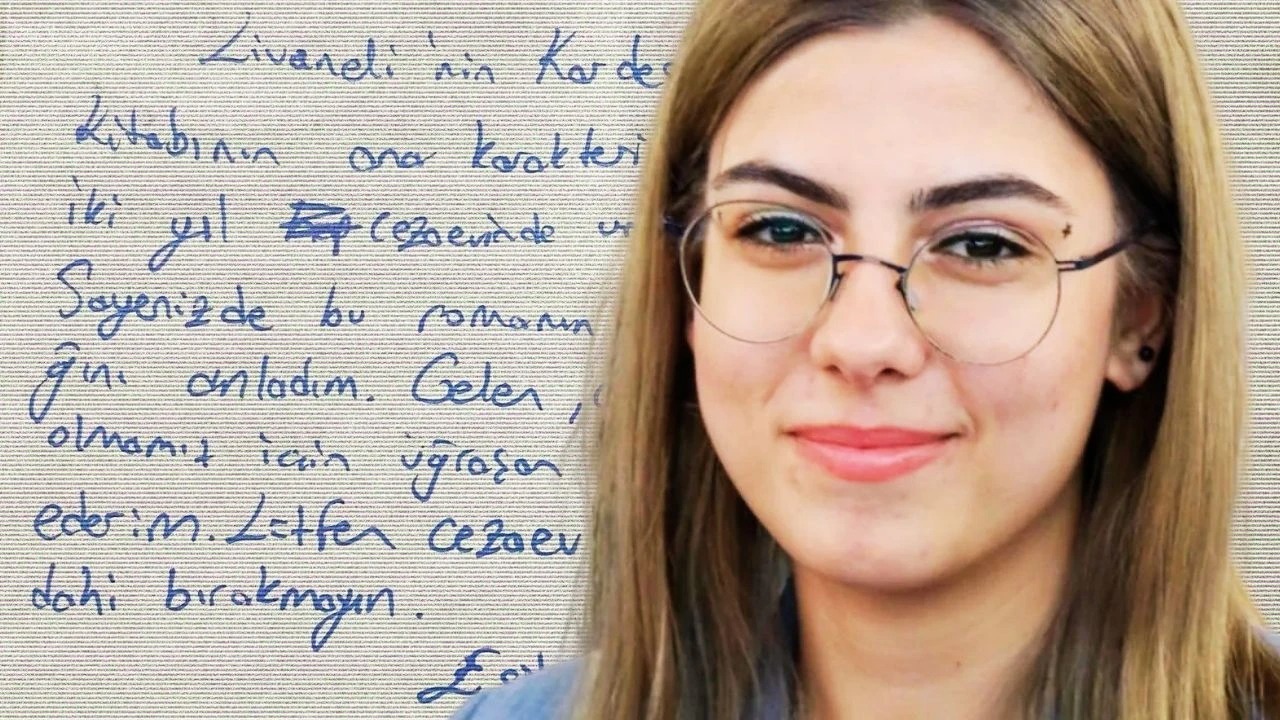 Livaneli'nin Karde
kitabının ana karakteri
iki yıl cezaevinde
Sayenizde bu romanın
ğini anladım. Gelen,
olmamız için uğraşan
ederim. Lütfen cezaev
dahi bırakmayın.